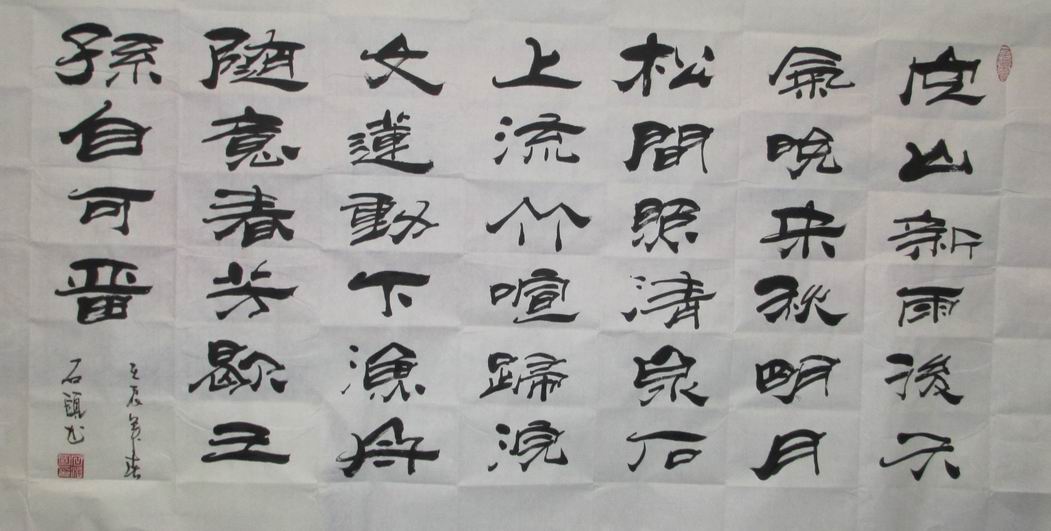 空山新雨後天
氣晚來秋明月
松間照清泉石
上流竹喧歸浣
女蓮動下漁舟
隨意春芳歇王
孫自可留
壬辰年春
石书